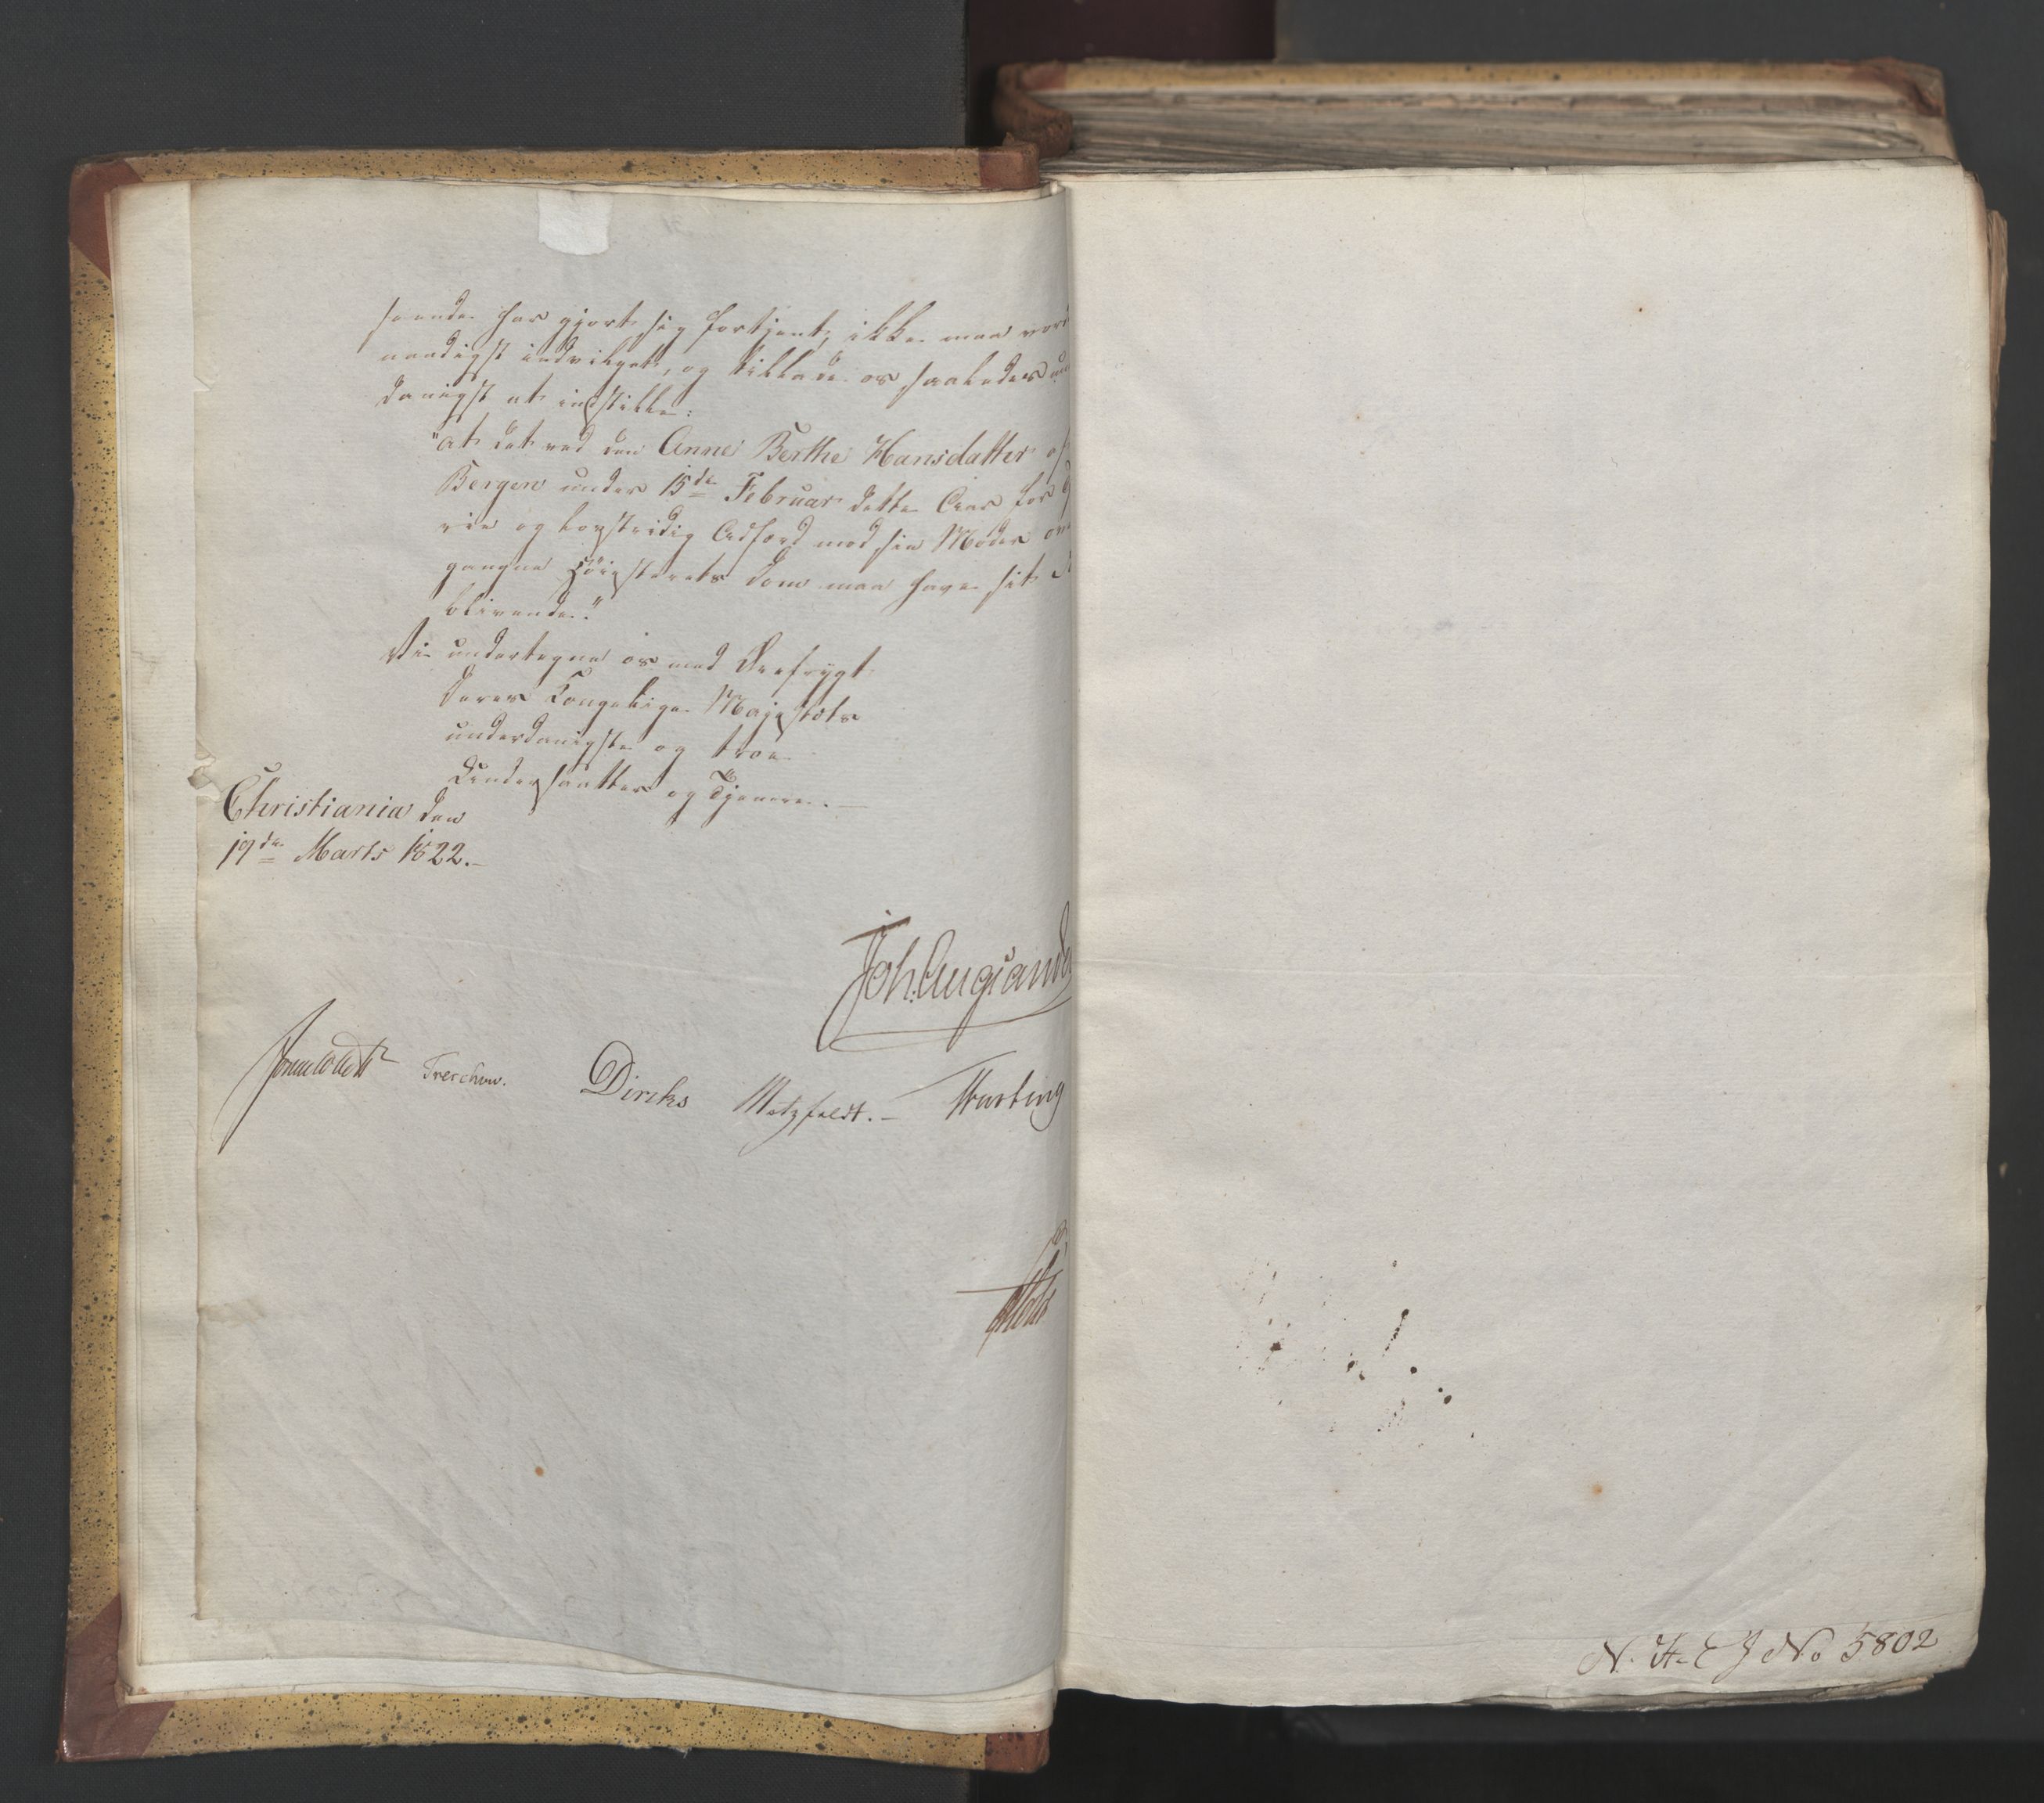 seende har gjort sig fortjent, ikke maa vord
naadigst indvilget, og tillade os saaledes un
danigst at indstille:
"at det ved den Anne Berthe Hansdatter af
Bergen under 15de Februar dette Aar for
rie og lovstridig Adfærd mod sin Moder ov
gangne Høiesterets Dom maa have sit
blivende."
Vi undertegne os med Ærefrygt
Deres Kongelige Majestæts
underdanigste og troe
Undersaatter og Tjenere.—
Christiania den
19de Marts 1822.—
Joh. Aug: Sande
Jonas Collett Treschow. Dircks Motzfeldt.— 
Holst
N. A. E J No 5802